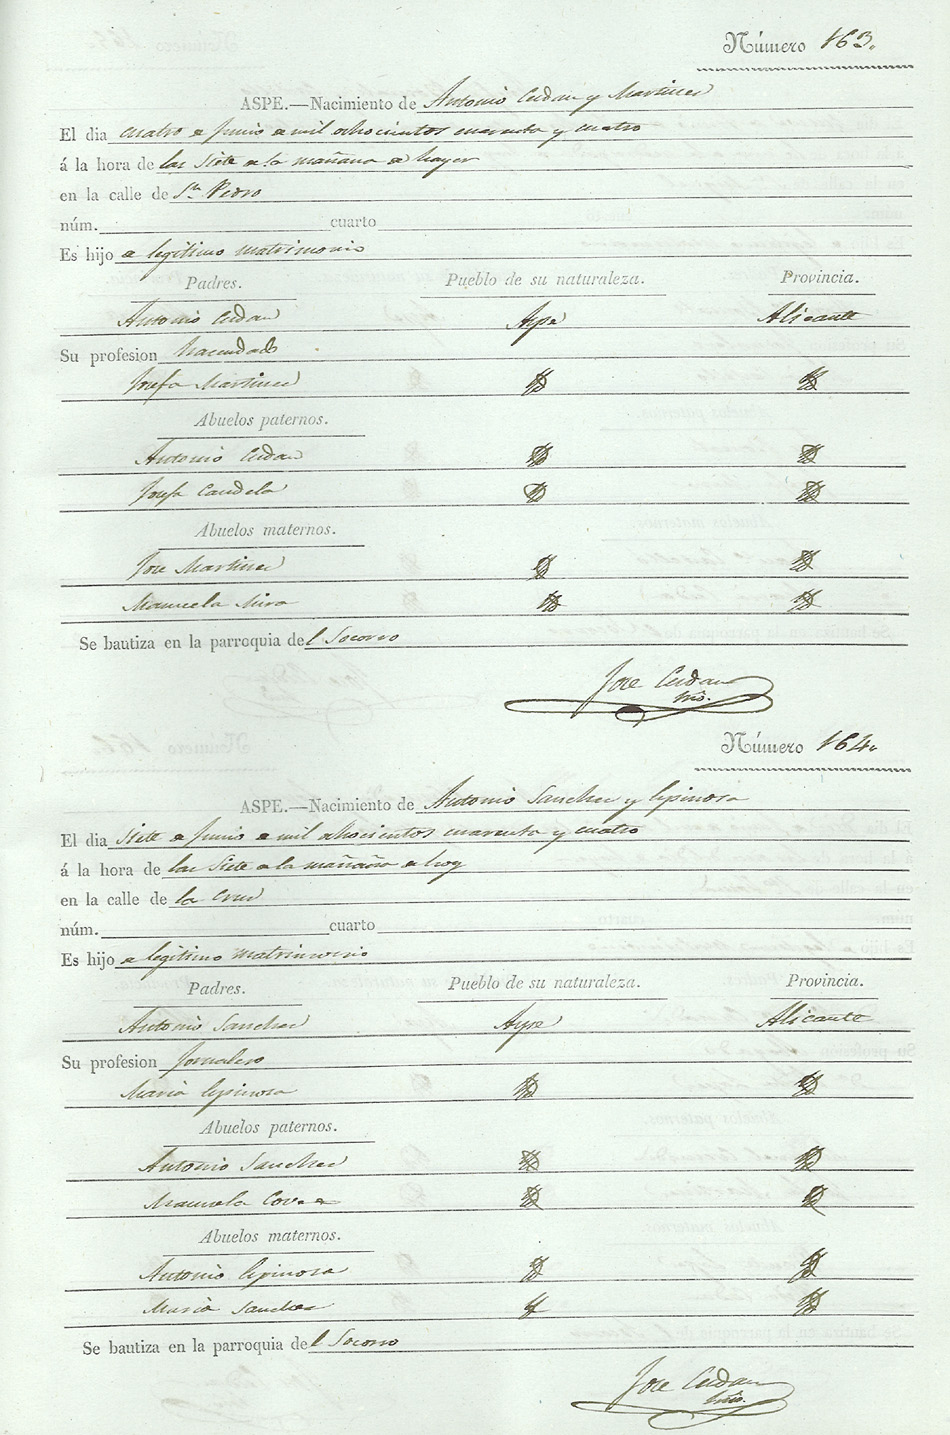 Número 163.
ASPE.—Nacimiento de Antonio Cerdan y Martinez
El dia cuatro de Junio de mil ochocientos cuarenta y cuatro
á la hora de las siete de la mañana de hayer
en la calle de Sn. Pedro
núm. cuarto
Es hijo de legitimo matrimonio
Padres. Pueblo de su naturaleza. Provincia.
Antonio Cerdan Aspe Alicante
Su profesion hacendado
Josefa Martinez
Abuelos paternos.
Antonio Cerdan
Josefa Candela
Abuelos maternos.
Jose Martinez
Manuela Mira
Se bautiza en la parroquia del Socorro
Jose Cerdan
Srio.
Número 164.
ASPE.—Nacimiento de Antonio Sanchez y Espinosa
El dia siete de Junio de mil ochocientos cuarenta y cuatro
á la hora de las siete de la mañana de hoy
en la calle de la Cruz
núm. cuarto
Es hijo de legitimo matrimonio
Padres. Pueblo de su naturaleza. Provincia.
Antonio Sanchez Aspe Alicante
Su profesion Jornalero
Maria Espinosa
Abuelos paternos.
Antonio Sanchez
Manuela
Abuelos maternos.
Antonio Espinosa
Maria Sanchez
Se bautiza en la parroquia del Socorro
Jose Cerdan
Srio.